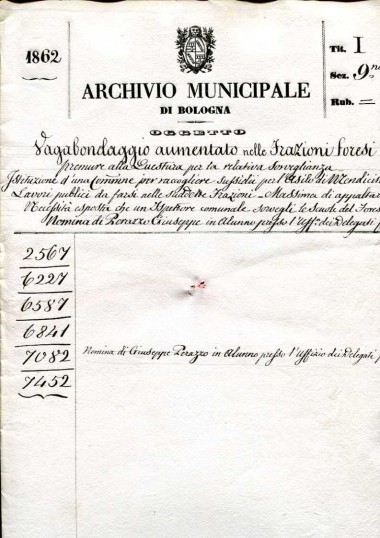 1862
Tit. I
Sez. 9.
Rub. =
ARCHIVIO MUNICIPALE
DI BOLOGNA
OGGETTO
Vagabondaggio aumentato nelle Frazioni Foresi
premure alla Questura per la relativa Sorveglianza
Istituzione d'una Commne per racogliere Sussidi per l'Asilo di Mendicità
Lavori publici da farsi nelle Suddette Frazioni - Massima di appaltar
Necessità esposta che un Ispettore comunale sorvegli le Scuole del Fores
Nomina di Perazzo Giuseppe in Alunno presso l'Uffo. dei Delegati
2567
6227
6587
6841
7082
Nomina di Giuseppe Perazzo in Alunno presso l'Uffizio dei Delegati
7452